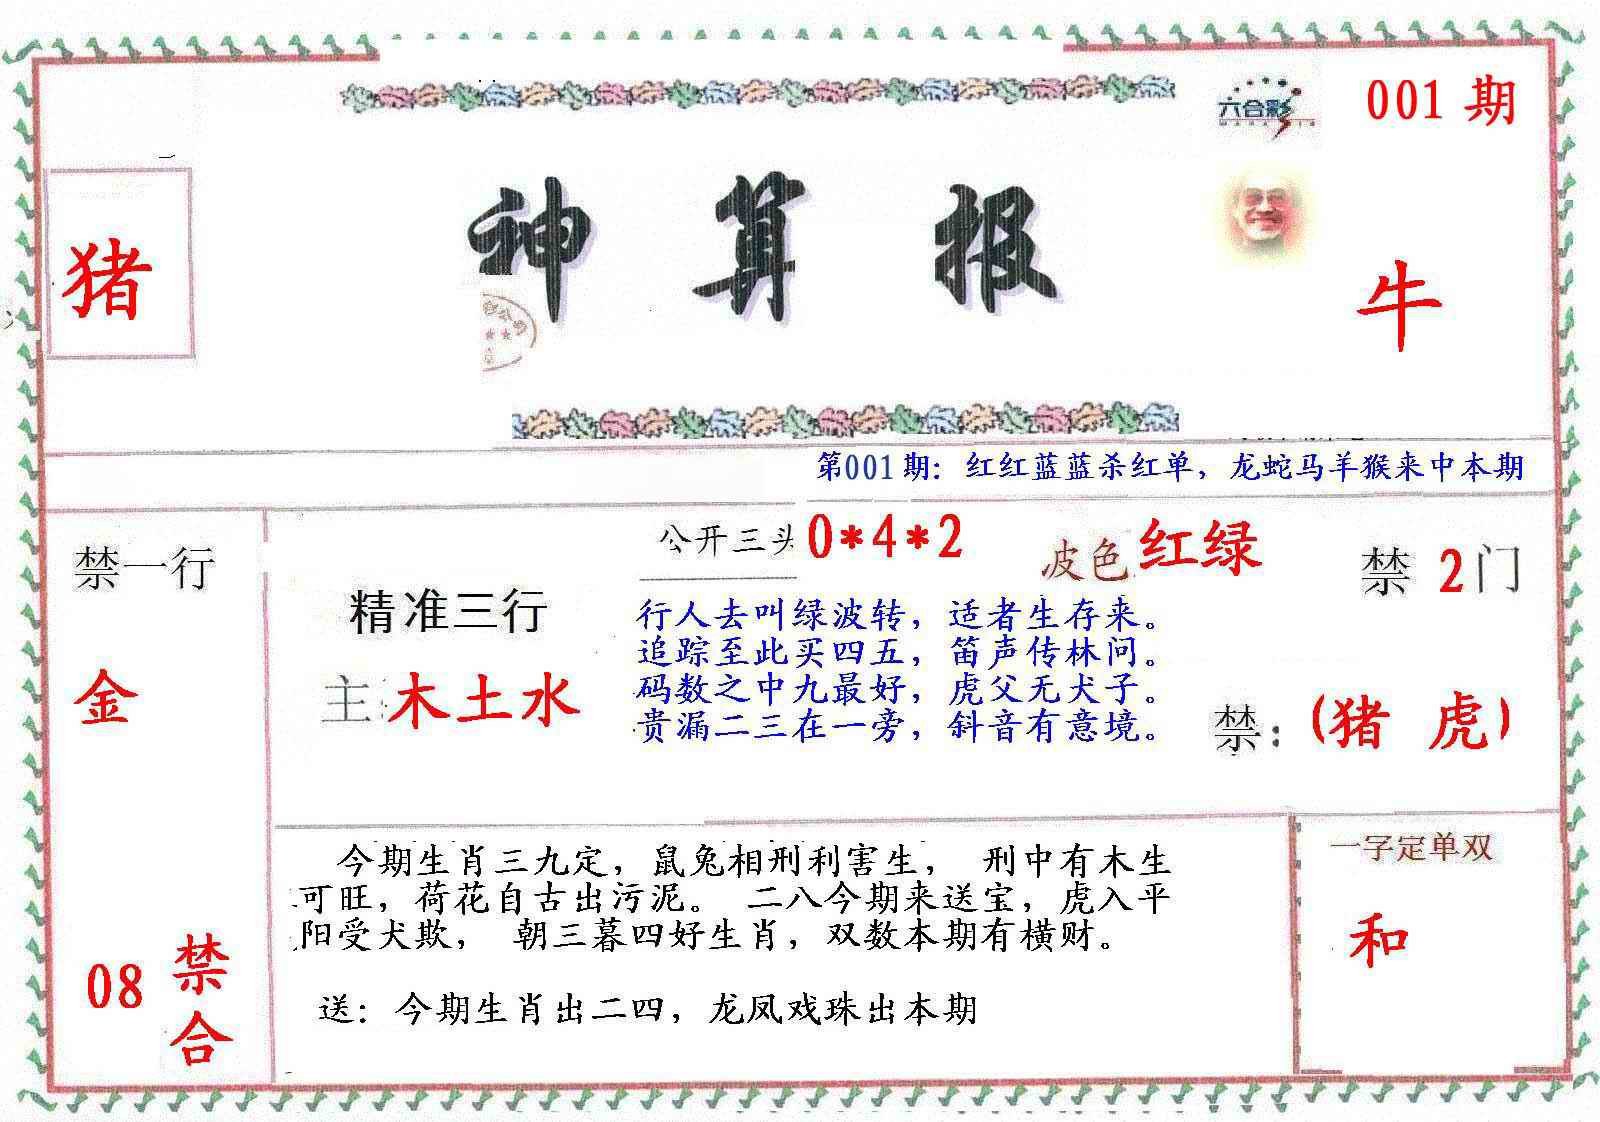 六合彩
001 期
猪
神 算 报
牛
第001期：红红蓝蓝杀红单，龙蛇马羊猴来中本期
禁一行
金
08 禁合
精准三行
主：木土水
公开三头 0*4*2
波色 红绿
禁 2 门
行人去叫绿波转，适者生存来。
追踪至此买四五，笛声传林问。
码数之中九最好，虎父无犬子。
贵漏二三在一旁，斜音有意境。
禁：(猪 虎)
今期生肖三九定，鼠兔相刑利害生， 刑中有木生
可旺，荷花自古出污泥。 二八今期来送宝，虎入平
阳受犬欺， 朝三暮四好生肖，双数本期有横财。
送：今期生肖出二四，龙凤戏珠出本期
一字定单双
和